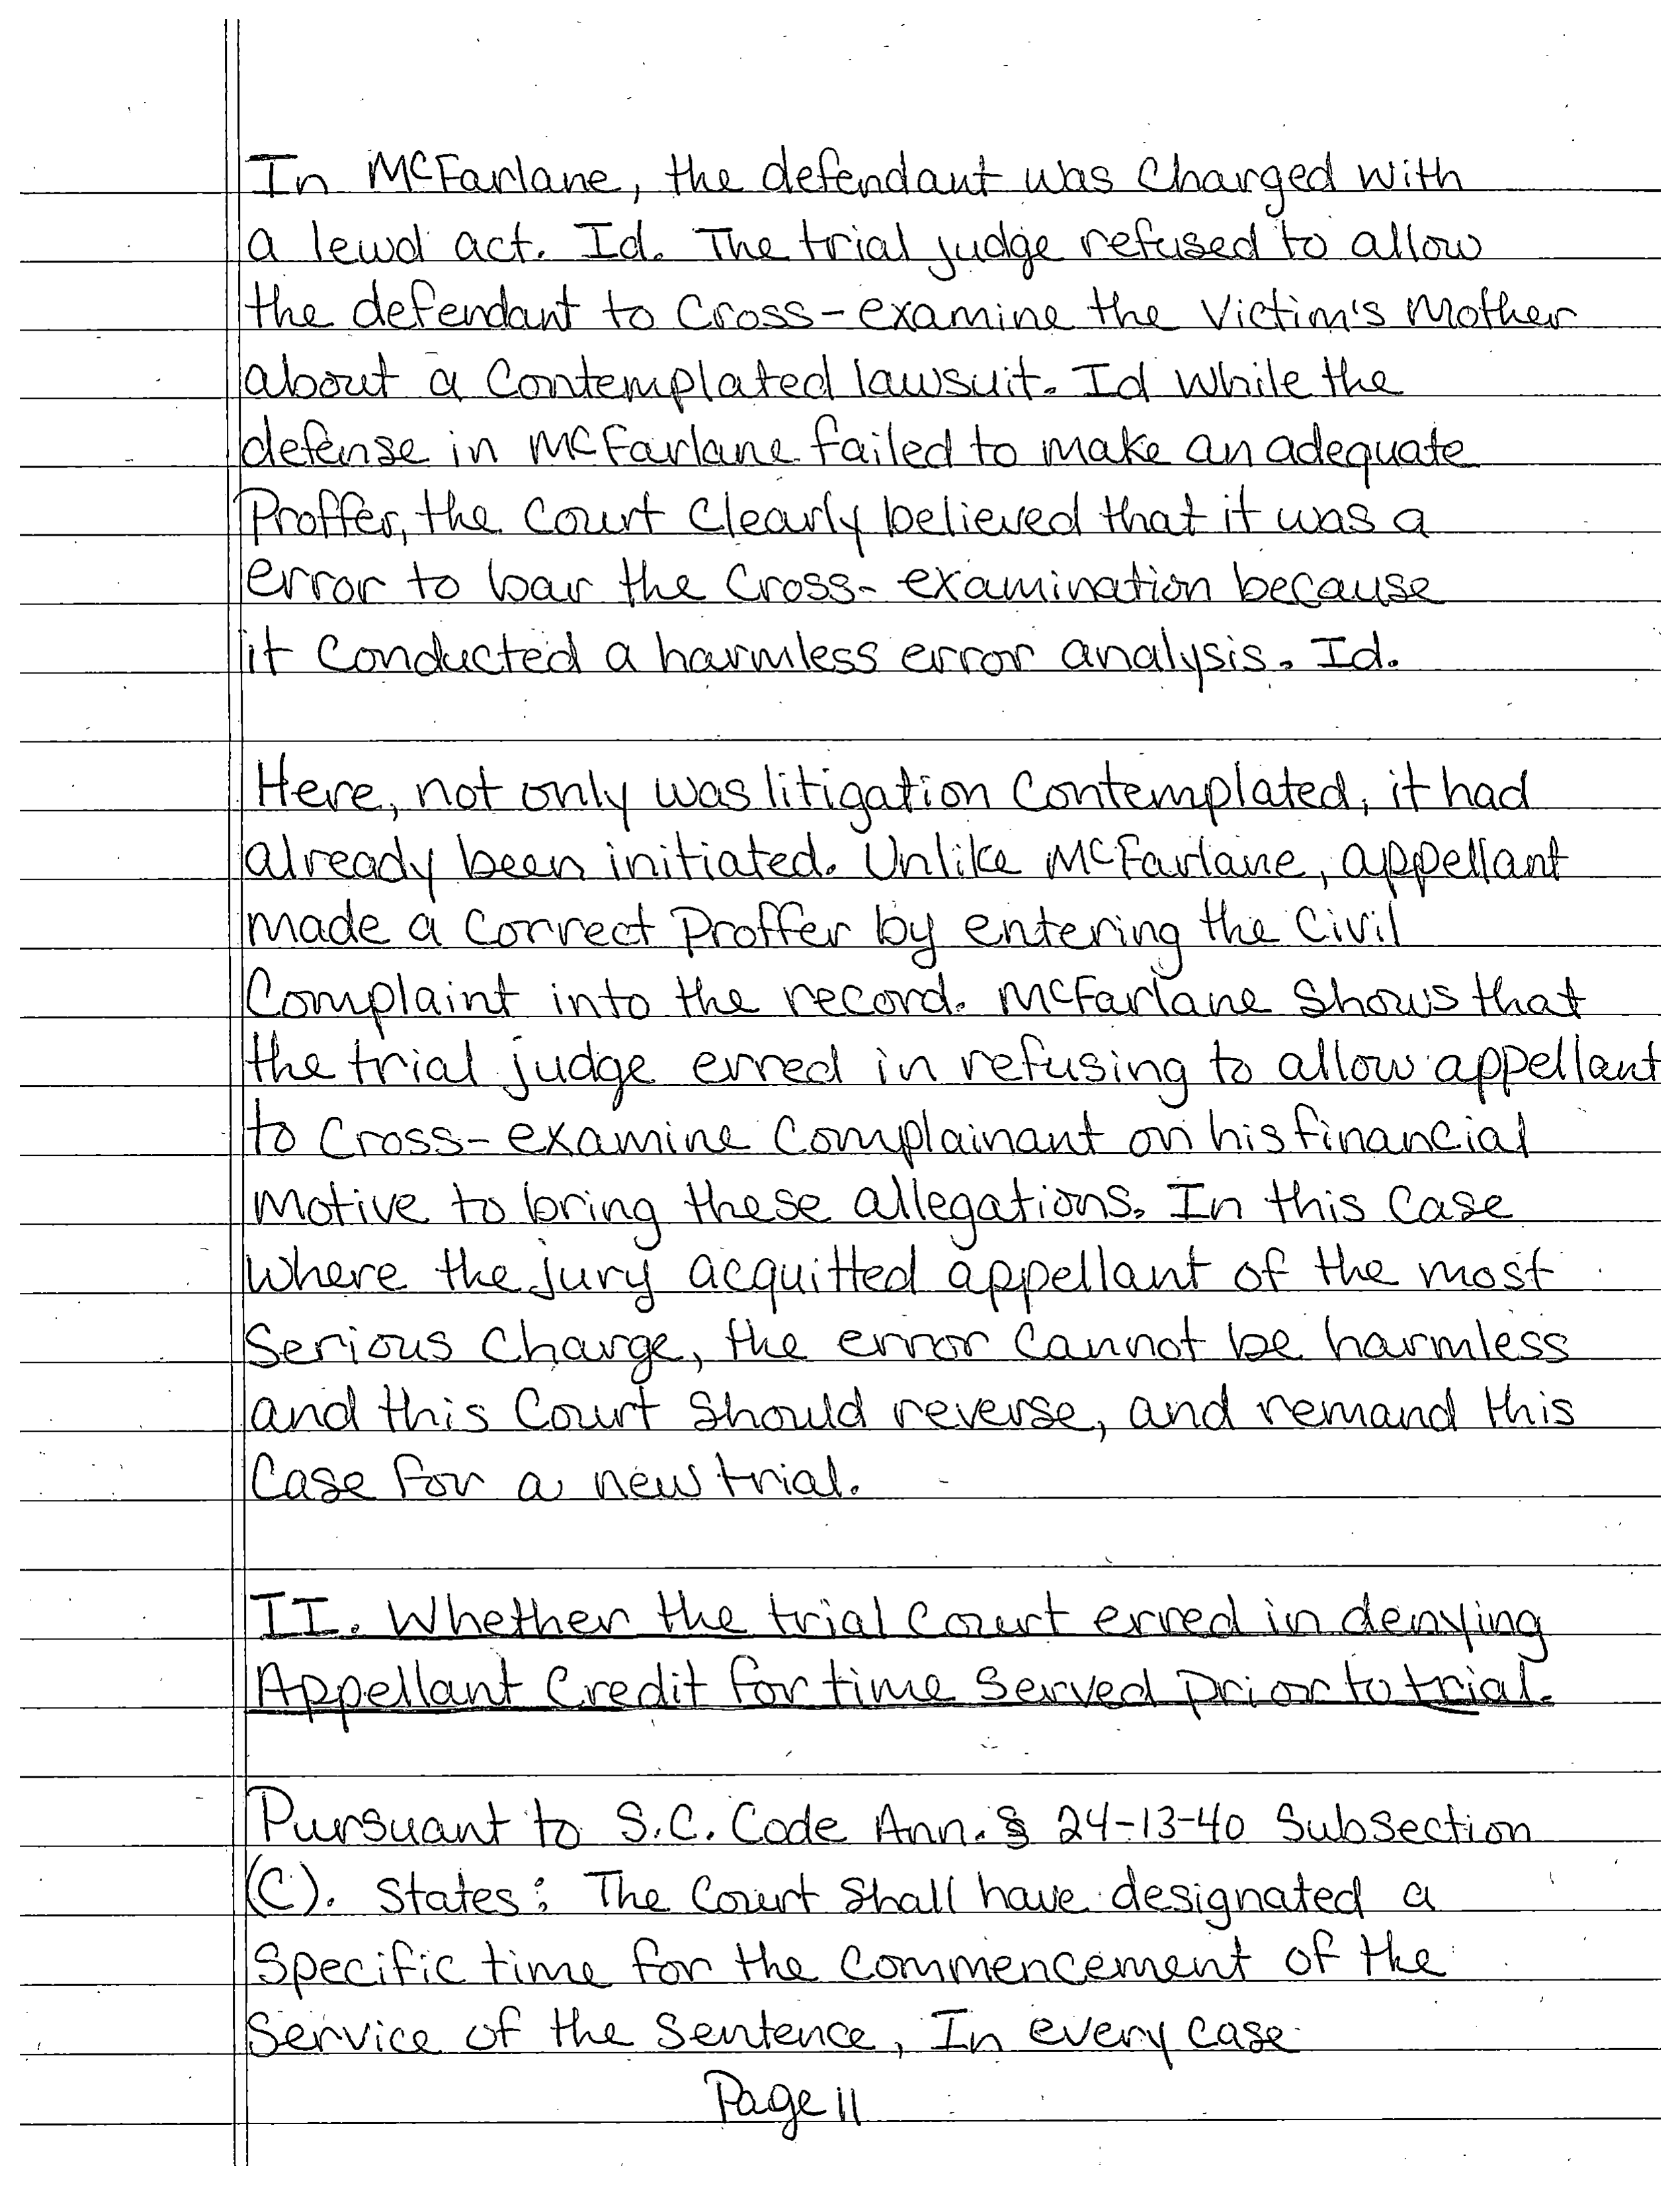 In McFarlane, the defendant was Charged with
a lewd act. Id. The trial judge refused to allow
the defendant to Cross-examine the Victim's Mother
about a Contemplated lawsuit. Id While the
defense in McFarlane failed to make an adequate
Proffer, the Court Clearly believed that it was a
error to bar the Cross-examination because
it Conducted a harmless error analysis. Id.
Here, not only was litigation Contemplated, it had
already been initiated. Unlike McFarlane, appellant
made a Correct Proffer by entering the Civil
Complaint into the record. McFarlane Shows that
the trial judge erred in refusing to allow appellant
to Cross-examine Complainant on his financial
Motive to bring these allegations. In this Case
Where the jury acquitted appellant of the most
Serious Charge, the error Cannot be harmless
and this Court Should reverse, and remand this
Case For a new trial.
II. Whether the trial Court erred in denying
Appellant Credit for time Served prior to trial.
Pursuant to S.C. Code Ann. § 24-13-40 Subsection
(C). States: The Court Shall have designated a
Specific time for the Commencement of the
Service of the Sentence, In every Case
Page 11